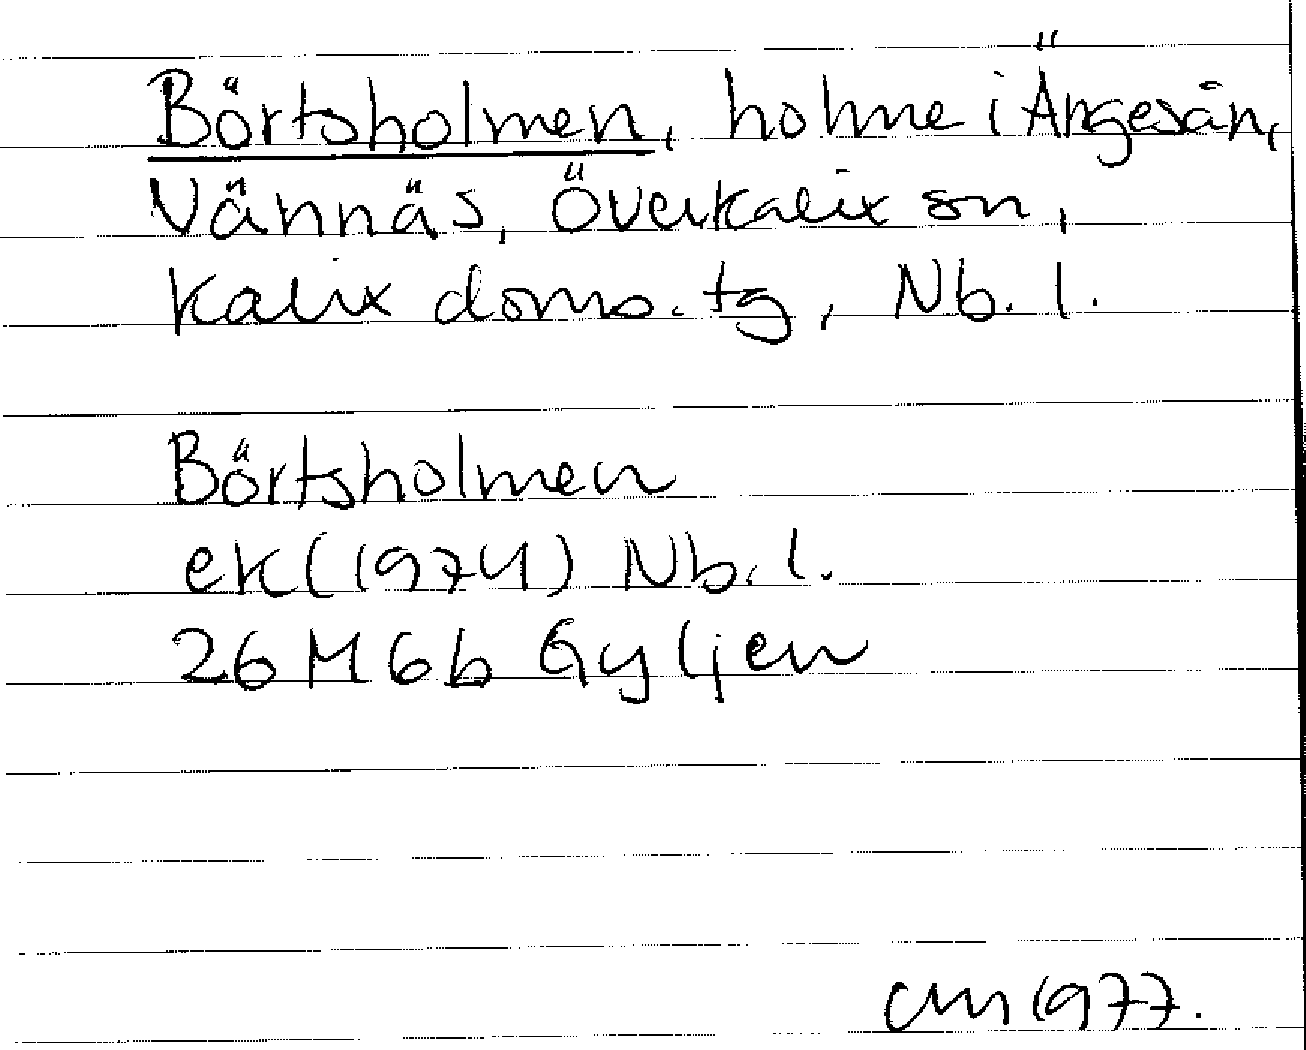 Börtsholmen, holme i Ängesån,
Vännäs, Överkalix sn,
Kalix doms.tg, Nb. l.
Börtsholmen
ek (1974) Nb. l.
26 M 6b Gyljen
CM 1977.